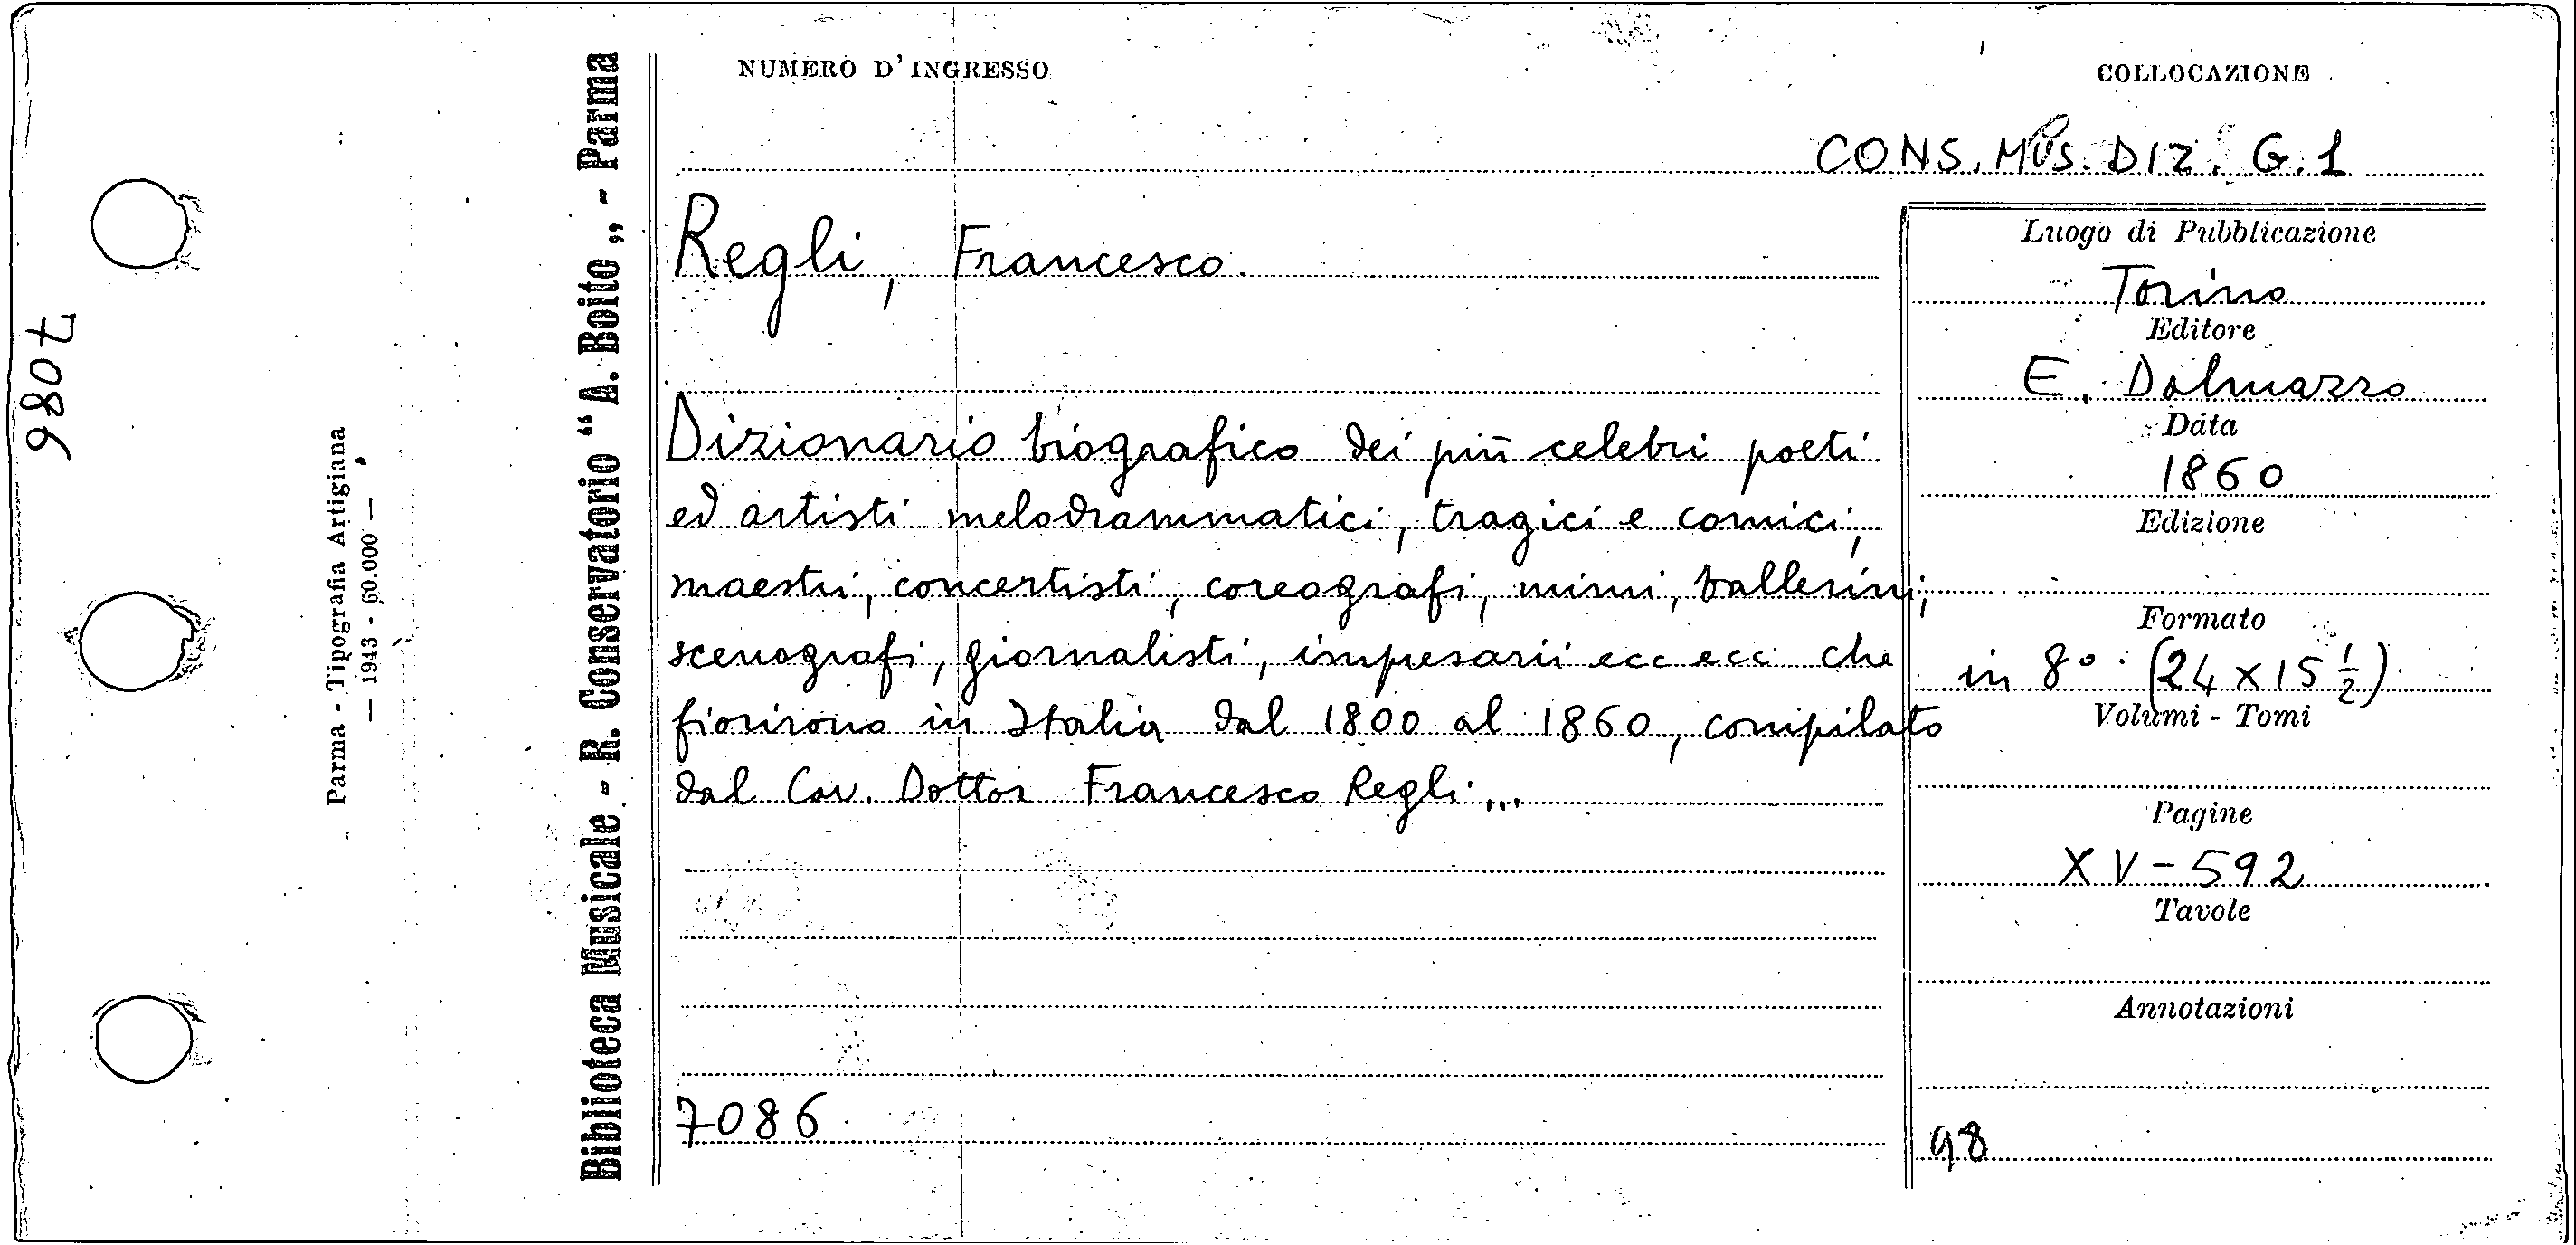 7086
Parma - Tipografia Artigiana
— 1943 - 60.000 —
Biblioteca Musicale - R. Conservatorio “A. Boito„ - Parma
NUMERO D'INGRESSO
COLLOCAZIONE
CONS. MUS. DIZ. G. 1
Regli, Francesco.
Dizionario biografico dei più celebri poeti
ed artisti melodrammatici, tragici e comici,
maestri, concertisti, coreografi, mimi, ballerini,
scenografi, giornalisti, impresarii ecc ecc che
fiorirono in Italia dal 1800 al 1860, compilato
dal Cav. Dottor Francesco Regli...
7086
Luogo di Pubblicazione
Torino
Editore
E. Dalmazzo
Data
1860
Edizione
Formato
in 8° (24 x 15 ½)
Volumi - Tomi
Pagine
XV - 592
Tavole
Annotazioni
98